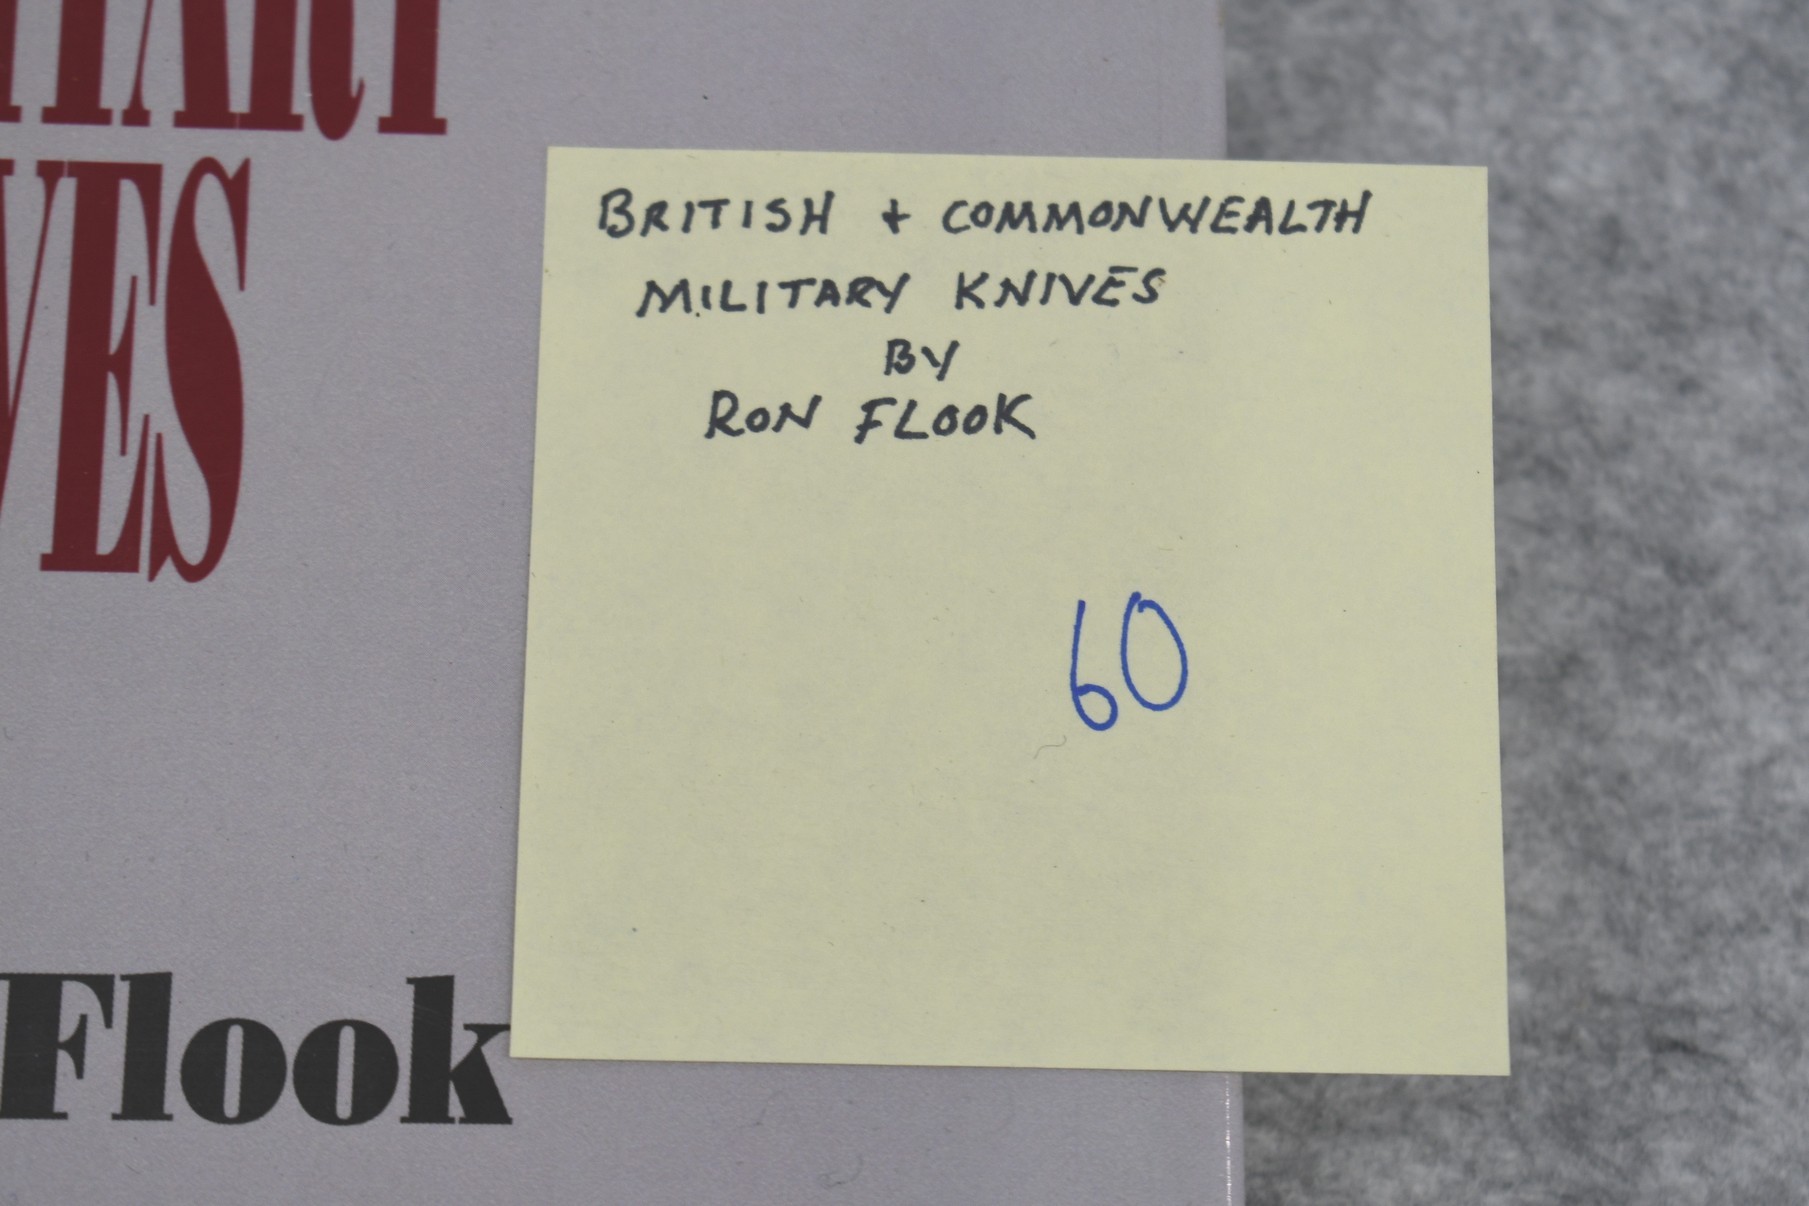 VES
Flook
BRITISH + COMMONWEALTH
MILITARY KNIVES
BY
RON FLOOK
60